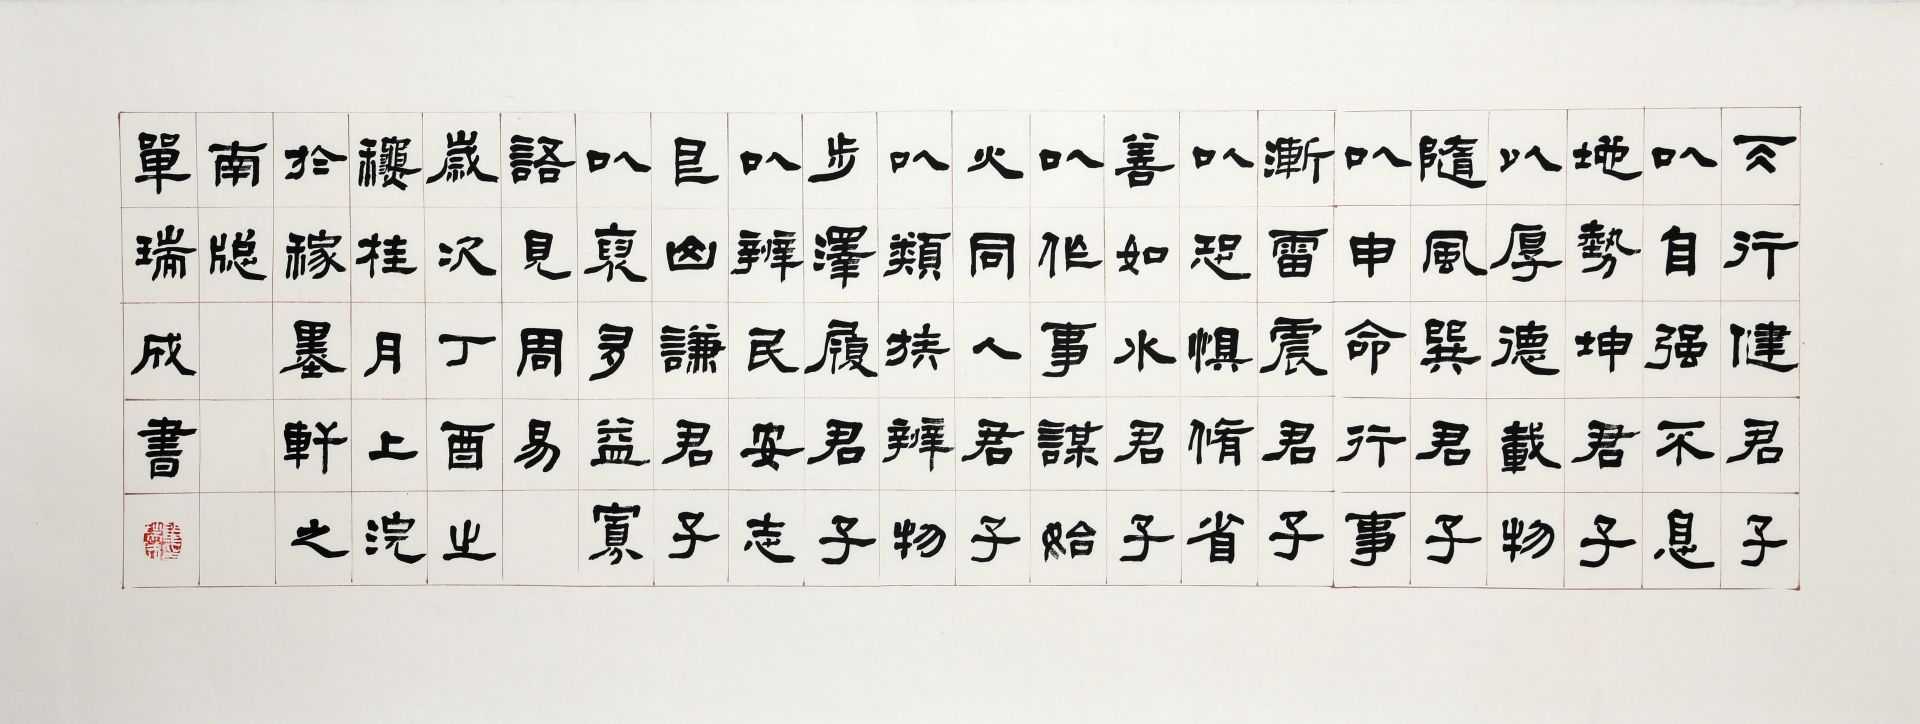 天行健君子
以自强不息
地勢坤君子
以厚德載物
隨風巽君子
以申命行事
漸雷震君子
以恐惧脩省
善如水君子
以作事謀始
火同人君子
以類族辨物
步澤履君子
以辨民安志
巨山謙君子
以裒多益寡
語見周易
歲次丁酉之
龝桂月上浣
於稼墨軒之
南牕
單瑞成書